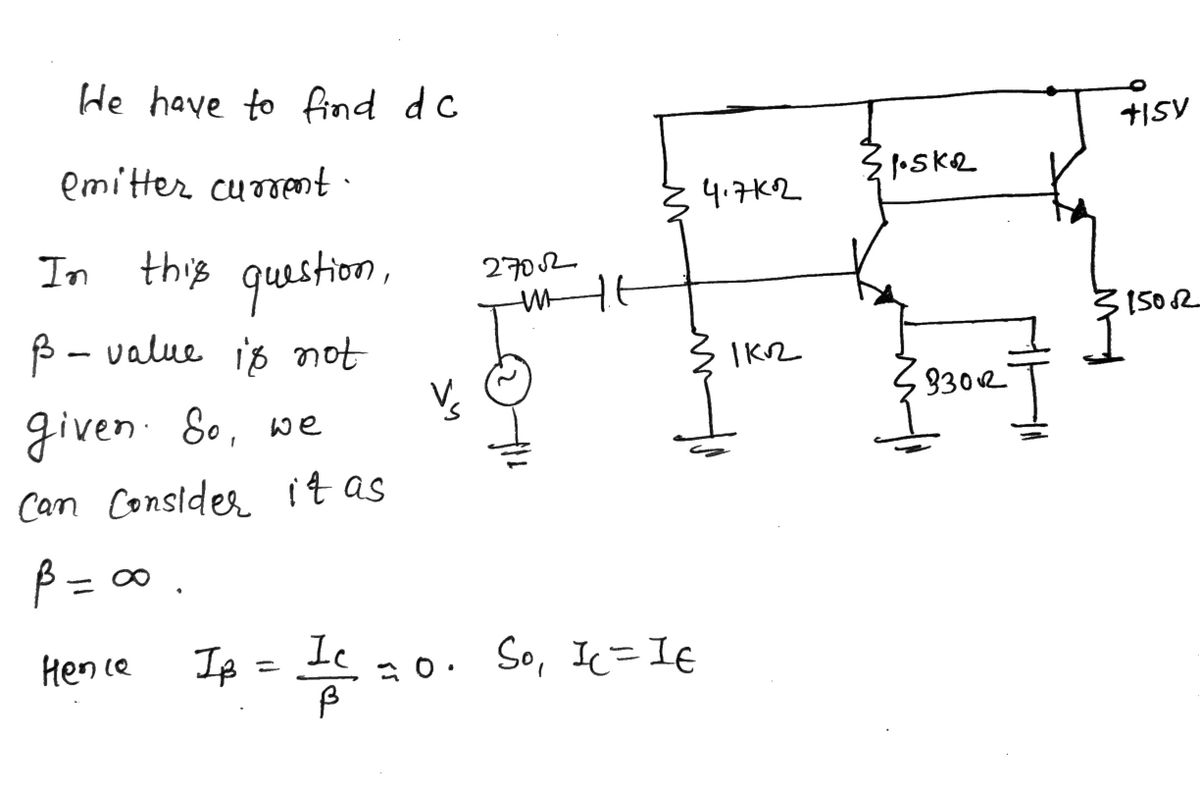 We have to find dc
emitter current.
In this question,
β - value is not
given. So, we
can Consider it as
β = ∞.
Hence I_B = I_C / β ≈ 0. So, I_C = I_E
+15V
1.5KΩ
4.7KΩ
270Ω
150Ω
1KΩ
330Ω
V_s